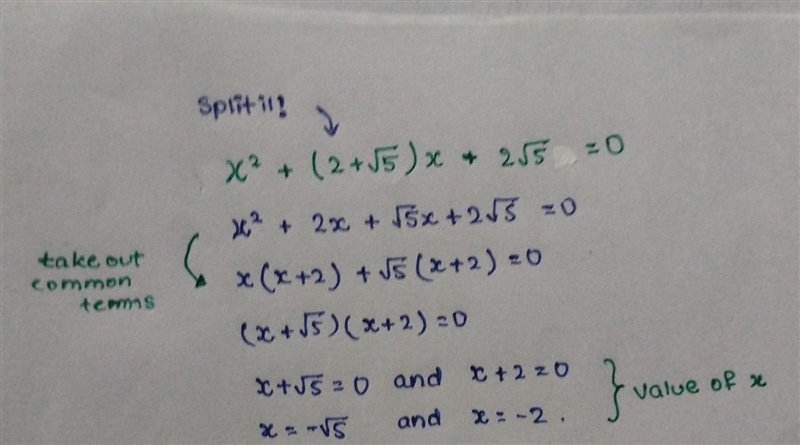 Split it!
x² + (2+√5)x + 2√5 = 0
x² + 2x + √5x + 2√5 = 0
take out
common
terms
x(x+2) + √5(x+2) = 0
(x+√5)(x+2) = 0
x+√5 = 0 and x+2 = 0
x = -√5 and x = -2.
value of x